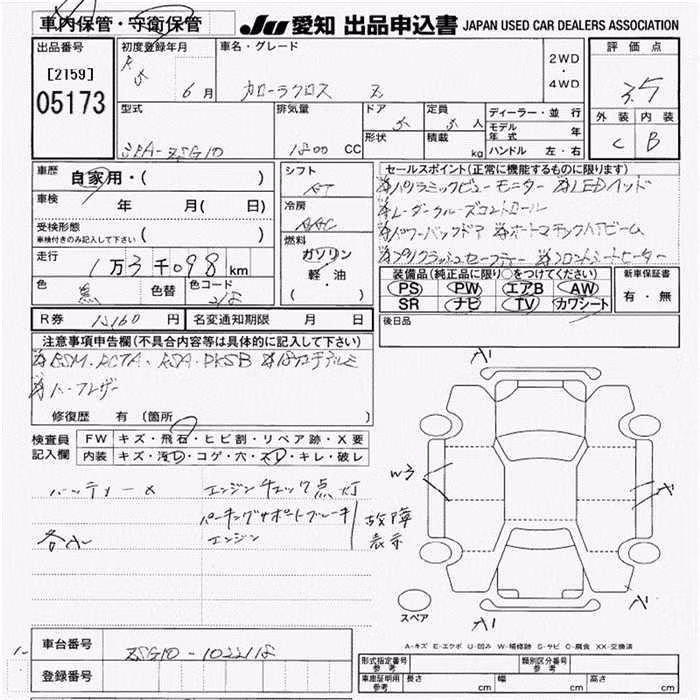 車内保管・守衛保管
JU 愛知 出品申込書 JAPAN USED CAR DEALERS ASSOCIATION
出品番号
[2159]
05173
初度登録年月
R5
6月
車名・グレード
カローラクロス Z
2WD・4WD
評価点
3.5
外装 内装
C B
型式
3BA-ZSG10
排気量
1800 CC
ドア
5
定員
5人
形状
積載
kg
ディーラー・並行
モデル年式 年
ハンドル 左・右
車歴
自家用・( )
車検
年 月( 日)
受検形態
車検付きのみ記入して下さい
( )
走行
1万3千098km
色
黒
色替
色コード
218
シフト
AT
冷房
AAC
燃料
ガソリン
軽・油
( )
セールスポイント(正常に機能するものに限ります)
パノラミックビューモニター LEDヘッド
レーダークルーズコントロール
パワーバックドア オートマチックハイビーム
プリクラッシュセーフティー フロントシートヒーター
装備品(純正品に限り○をつけてください)
PS PW エアB AW
SR ナビ TV カワシート
新車保証書
有・無
R券 12160円
名変通知期限 月 日
後日品
注意事項申告欄(不具合内容等は具体的に記入して下さい)
BSM. RCTA. RSA. PKSB 18インチアルミ
修復歴 有(箇所 )
検査員記入欄
FW キズ・飛石・ヒビ割・リペア跡・X要
内装 キズ・汚レ・コゲ・穴・スレ・キレ・破レ
バッテリー× エンジンチェック点灯
パーキングサポートブレーキ
エンジン
故障表示
各A
A1
W3
A1
A1
スペア
A-キズ E-エクボ U-凹み W-補修跡 S-サビ C-腐食 XX-交換済
車台番号
ZSG10-1022118
登録番号
形式指定番号 参考
類別区分番号 参考
車庫証明用 参考
長さ cm
幅 cm
高さ cm